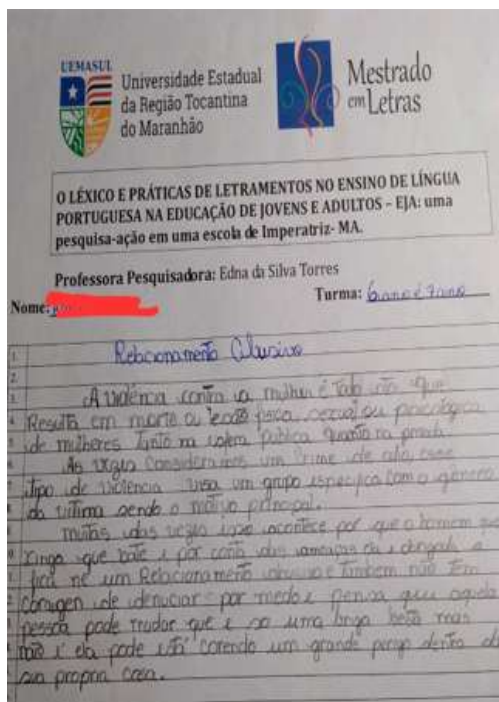 UEMASUL
Universidade Estadual
da Região Tocantina
do Maranhão
Mestrado
em Letras
O LÉXICO E PRÁTICAS DE LETRAMENTOS NO ENSINO DE LÍNGUA
PORTUGUESA NA EDUCAÇÃO DE JOVENS E ADULTOS – EJA: uma
pesquisa-ação em uma escola de Imperatriz- MA.
Professora Pesquisadora: Edna da Silva Torres
Turma: 6 ano e 7 ano
Nome:
Relacionamento Abusivo
A violência contra a mulher é todo ato que
Resulta em morte ou lesão fisica, sexual ou psicologica
de mulheres tanto na esfera publica quanto na privada
As vezes Consideramos um Crime de odio, esse
tipo de violência visa um grupo especifico com o gênero
da vitima sendo o motivo principal.
muitas das vezes isso acontece por que o homem que
Xinga que bate e por conta das ameaças ela é obrigada a
fica ne um Relacionamento abusivo e Tambem não tem
coragen de denuciar por medo e pensa que aquela
pessoa pode mudar que e so uma briga besta mas
não é ela pode está corendo um grande perigo dentro de
sua propria casa.